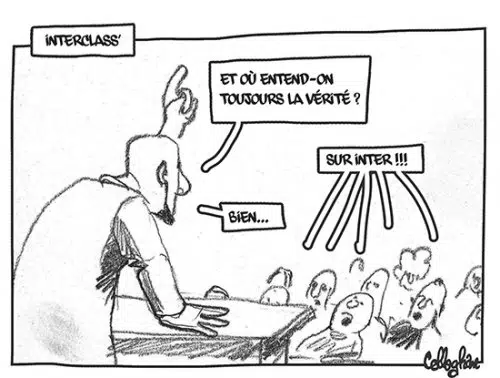 INTERCLASS'
ET OÙ ENTEND-ON
TOUJOURS LA VÉRITÉ ?
SUR INTER !!!
BIEN...